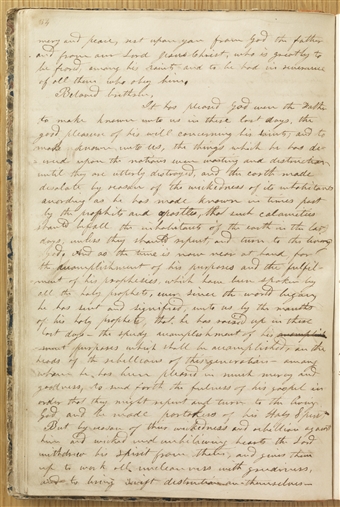 mercy and peace, rest upon you from God the father
and from our Lord Jesus Christ, who is greatly to
be feard, among his saints and to be had in reverence
of all them who obey him.
Beloved brethren,
It has pleased God even the Father
to make known unto us in these last days, the
good pleasure of his will concerning his saints, and to
make known unto us, the things which he has de-
creed upon the nations even wasting and destruction
until they are utterly destroyed, and the earth made
desolate by reason of the wickedness of its inhabitants
according as he has made known in times past
by the prophets and apostles, that such calamities
should befall the inhabitants of the earth in the last
days, unless they should repent, and turn to the living
God. And as the time is now near at hand, for
the accomplishment of his purposes and the fulfil-
ment of his prophecies, which have been spoken by
all the holy prophets, ever since the world began
he has sent and signified, unto us by the mouths
of his holy prophets that he has raised up in these
last days, the speedy accomplishment of his
purposes which shall be accomplished, on the
heads of the rebellious of this generation among
whom he has been pleased in much mercy and
goodness, to send forth the fulness of his gospel in
order that they might repent and turn to the living
God and be made partakers of his Holy Spirit
But by reason of their wickedness and rebellion against
him and wicked and unbelieving hearts the Lord
withdrew his spirit from them, and gives them
up to work all uncleanness with greediness,
and to bring swift destruction on themselves